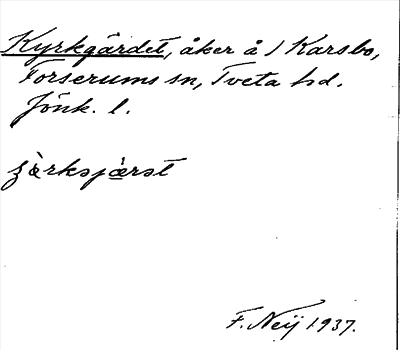 Kyrkgärdet, åker å 1 Karsbo,
Forserums sn, Tveta hd.
Jönk. l.
F. Neij 1937.